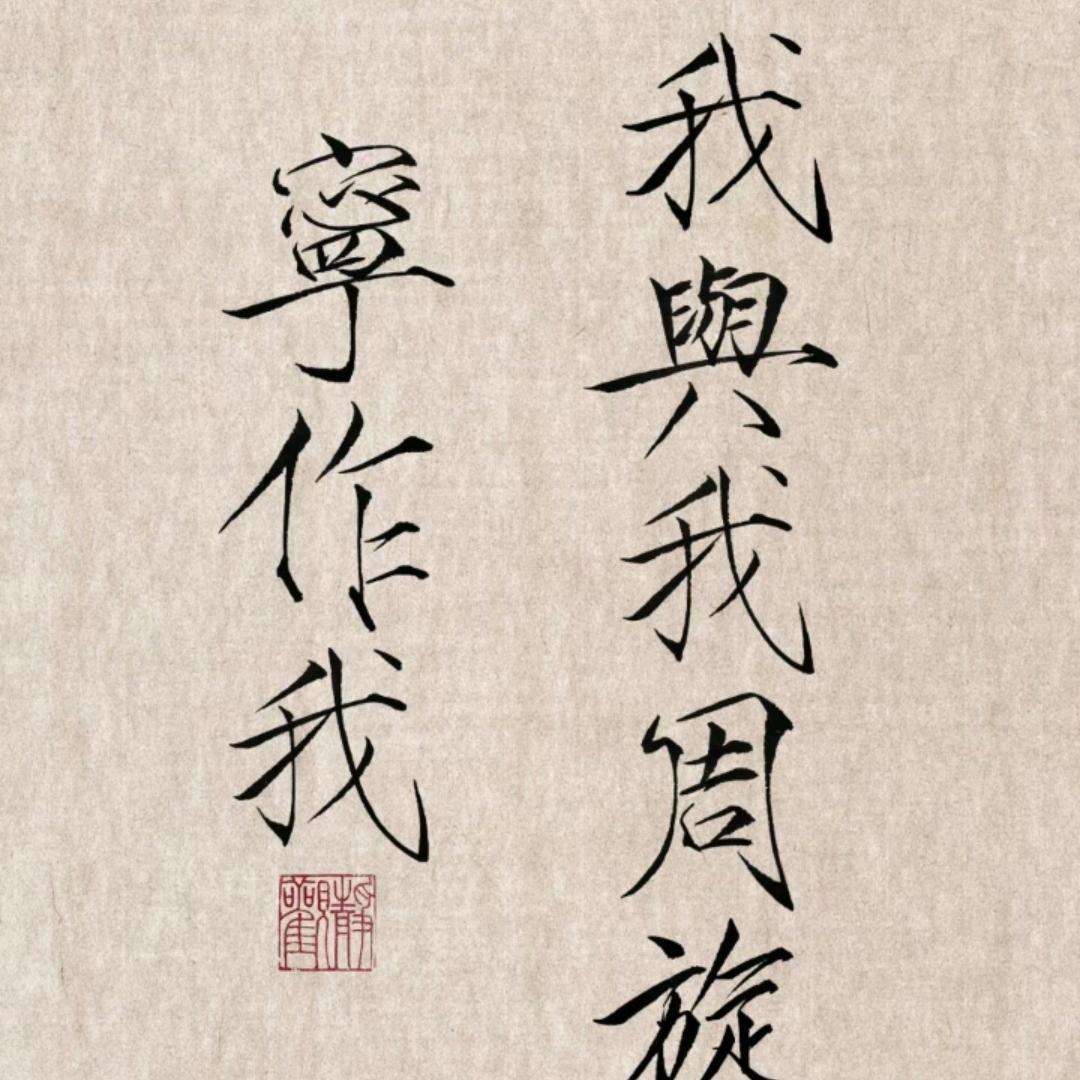 我與我周旋
寧作我
靜觀